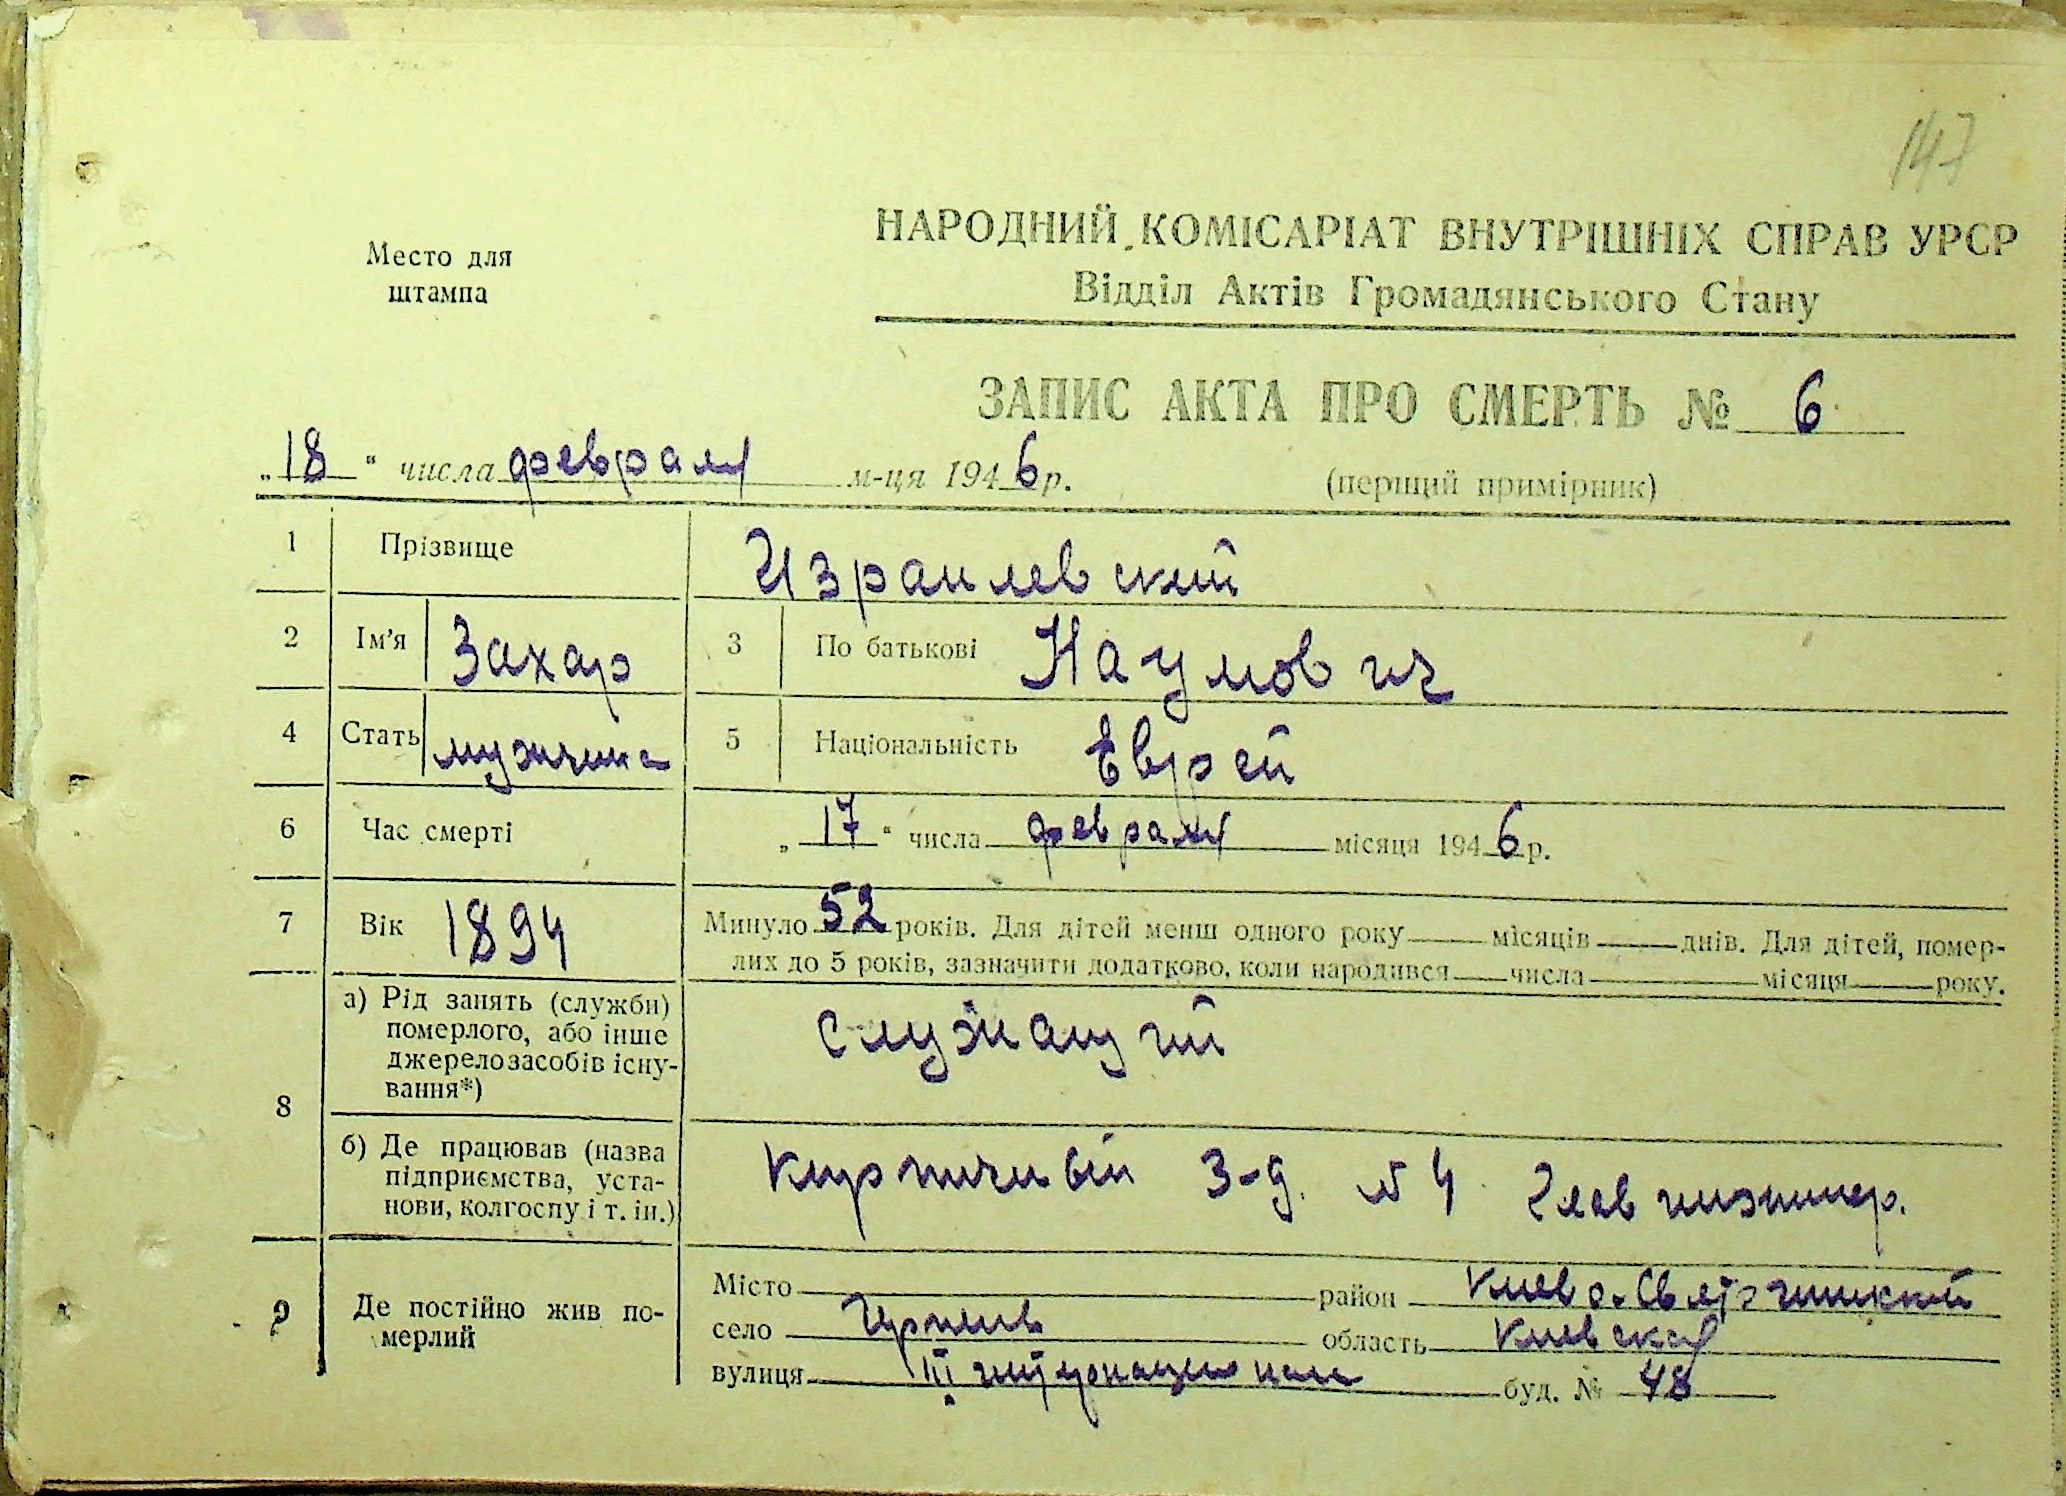 147
Место для
штампа
НАРОДНИЙ КОМІСАРІАТ ВНУТРІШНІХ СПРАВ УРСР
Відділ Актів Громадянського Стану
ЗАПИС АКТА ПРО СМЕРТЬ № 6
„18“ числа февраля м-ця 1946 р.
(перший примірник)
1 Прізвище Израилевский
2 Ім’я Захар 3 По батькові Наумович
4 Стать мужчина 5 Національність Еврей
6 Час смерті „17“ числа февраля місяця 1946 р.
7 Вік 1894 Минуло 52 років. Для дітей менш одного року місяців днів. Для дітей, помер-
лих до 5 років, зазначити додатково, коли народився числа місяця року.
8 а) Рід занять (служби)
померлого, або інше
джерело засобів існу-
вання*)
служащий
б) Де працював (назва
підприємства, уста-
нови, колгоспу і т. ін.)
Кирпичный З-д. № 4 Глав инженер.
9 Де постійно жив по-
мерлий
Місто район Киево-Святошинский
село Ирпень область Киевская
вулиця III интернационала буд. № 48